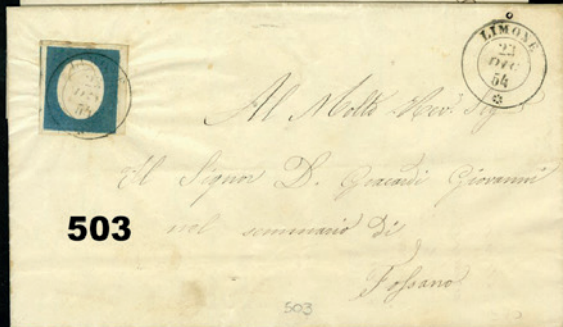 LIMONE
23
DIC
54
23
DIC
54
Al Molto Rev. Sig
Il Signor D. Giovanni
503 nel seminario di
Fossano
503